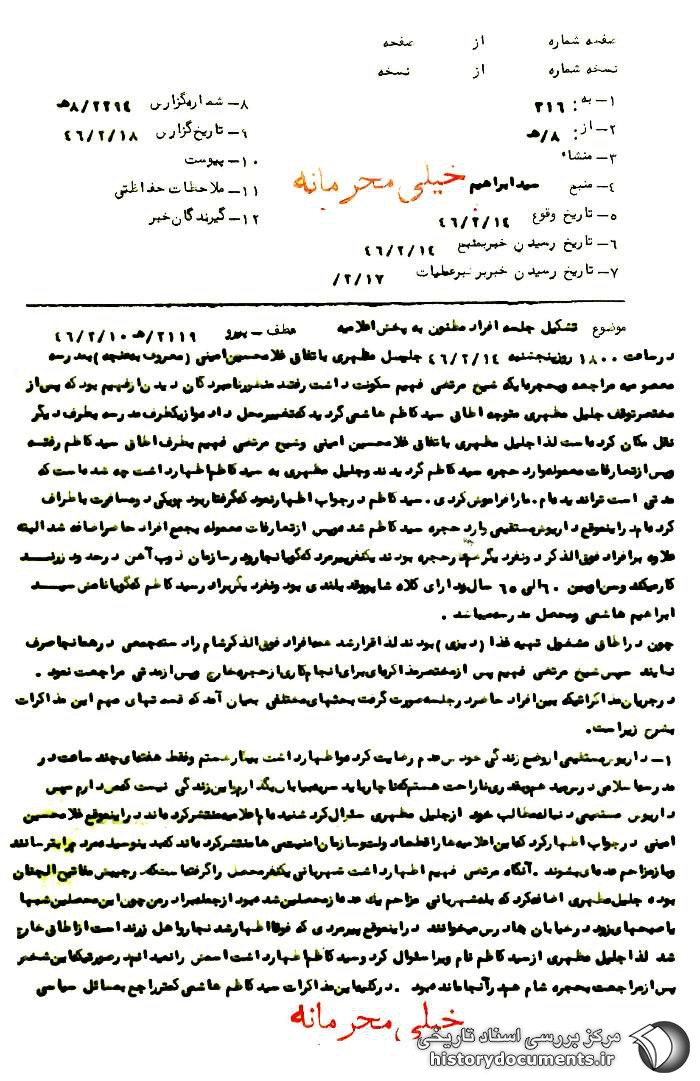 صفحه شماره از صفحه
نسخه شماره از نسخه
۱ــ به : ۳۱۶
۲ــ از : ۸/هـ
۳ــ منشاء
۴ــ منبع سیدابراهیم
۵ــ تاریخ وقوع ۴۶/۲/۱۴
۶ــ تاریخ رسیدن خبربمنبع ۴۶/۲/۱۴
۷ــ تاریخ رسیدن خبربرهبرعملیات ۲/۱۷/
۸ــ شماره گزارش
۹ــ تاریخ گزارش ۴۶/۲/۱۸
۱۰ــ پیوست
۱۱ــ ملاحظات حفاظتی
۱۲ــ گیرندگان خبر
خیلی محرمانه
موضوع تشکیل جلسه افراد مظنون به پخش اعلامیه عطف ــ پیرو ۲۱۱۹/هـ ۴۶/۲/۱۰
درساعت ۱۸۰۰ روزپنجشنبه ۴۶/۲/۱۴ جلیل مظهری باتفاق غلامحسین امینی (معروف به ) بمدرسه
معصومیه مراجعه وبحجره ایکه شیخ مرتضی فهیم سکونت داشت رفتند منظورنامبردگان دیدن ازفهیم بود که پس از
مختصرتوقف جلیل مظهری متوجه اطاق سید کاظم هاشمی گردید که تغییرمحل داده وازیکطرف مدرسه بطرف دیگر
نقل مکان کرده است لذا جلیل مظهری باتفاق غلامحسین امینی وشیخ مرتضی فهیم بطرف اطاق سید کاظم رفته
وپس ازتعارفات معموله وارد حجره سید کاظم گردیدند وجلیل مظهری به سید کاظم اظهارداشت چه شده است که
مدتی است نیامده‌ام . مارافراموش کردی . سید کاظم درجواب اظهارنمود که گرفتاربودم ویکی دومسافرت باطراف
کرده‌ام دراینموقع داریوش مستقیمی وارد حجره سید کاظم شد وپس ازتعارفات معموله بجمع افراد حاضراضافه شد البته
علاوه برافراد فوق الذکر دونفر دیگر درحجره بودند یکنفرپیرمرد که گویا نجارودرسازمان ذوب آهن درحدود زرند
کارمیکند وسن اوبین ۶۰ الی ۶۵ سال ودارای کلاه شاپووقد بلندی بود ونفردیگربرادرسید کاظم که گویا نامش سید
ابراهیم هاشمی ومحصل مدرسه میباشد .
چون دراطاق مشغول تهیه غذا (دیزی) بودند لذا قرارشد همه افراد فوق الذکرشام رادسته جمعی درهمانجا صرف
نمایند سپس شیخ مرتضی فهیم پس ازمختصرمذاکره‌ای برای انجام کاری ازحجره خارج وپس ازمدتی مراجعت نمود .
درجریان مذاکراتیکه بین افراد حاضردرجلسه صورت گرفت بحثهای مختلفی بمیان آمد که قسمتهای مهم این مذاکرات
بشرح زیراست.
۱ــ داریوش مستقیمی ازوضع زندگی خودش عدم رضایت کرده واظهارداشت بیکارهستم وفقط هفته‌ای چند ساعت در
مدرسه اسلامی درس میدهم وبقدری ناراحت هستم که ناچارباید سربه بیابان بگذارم واین زندگی نیست که من دارم سپس
داریوش مستقیمی دنباله مطالب خود ازجلیل مظهری سئوال کرد شنیده‌ام اعلامیه منتشرکرده‌اند دراینموقع غلامحسین
امینی درجواب اظهارکرد که این اعلامیه‌هارا قطعا دولت وسازمان امنیتی‌ها منتشرکرده‌اند که بدینوسیله مردم رابترسانند
وبازمزاحم عده‌ای بشوند . آنگاه مرتضی فهیم اظهارداشت شهربانی یکنفرمحصل راگرفته است که درجیبش مفاتیح الجنان
بوده جلیل مظهری اضافه کرد که بله شهربانی مزاحم یک عده ازمحصلین شده بود ازجمله برادرمن چون این محصلین شبها
یاصبحهای زود درخیابان هادرس میخوانند دراینموقع پیرمردی که فوقا اظهارشد نجارواهل زرند است ازاطاق خارج
شد لذا جلیل مظهری ازسید کاظم نام ویرا سئوال کرد وسید کاظم اظهارداشت اسمش رانمیدانم درصورتیکه این شخص
پس ازمراجعت بحجره شام هم درآنجا مانده بود . درکلیه این مذاکرات سید کاظم هاشمی کمترراجع بمسائل سیاسی
خیلی محرمانه
مرکز بررسی اسناد تاریخی
historydocuments.ir